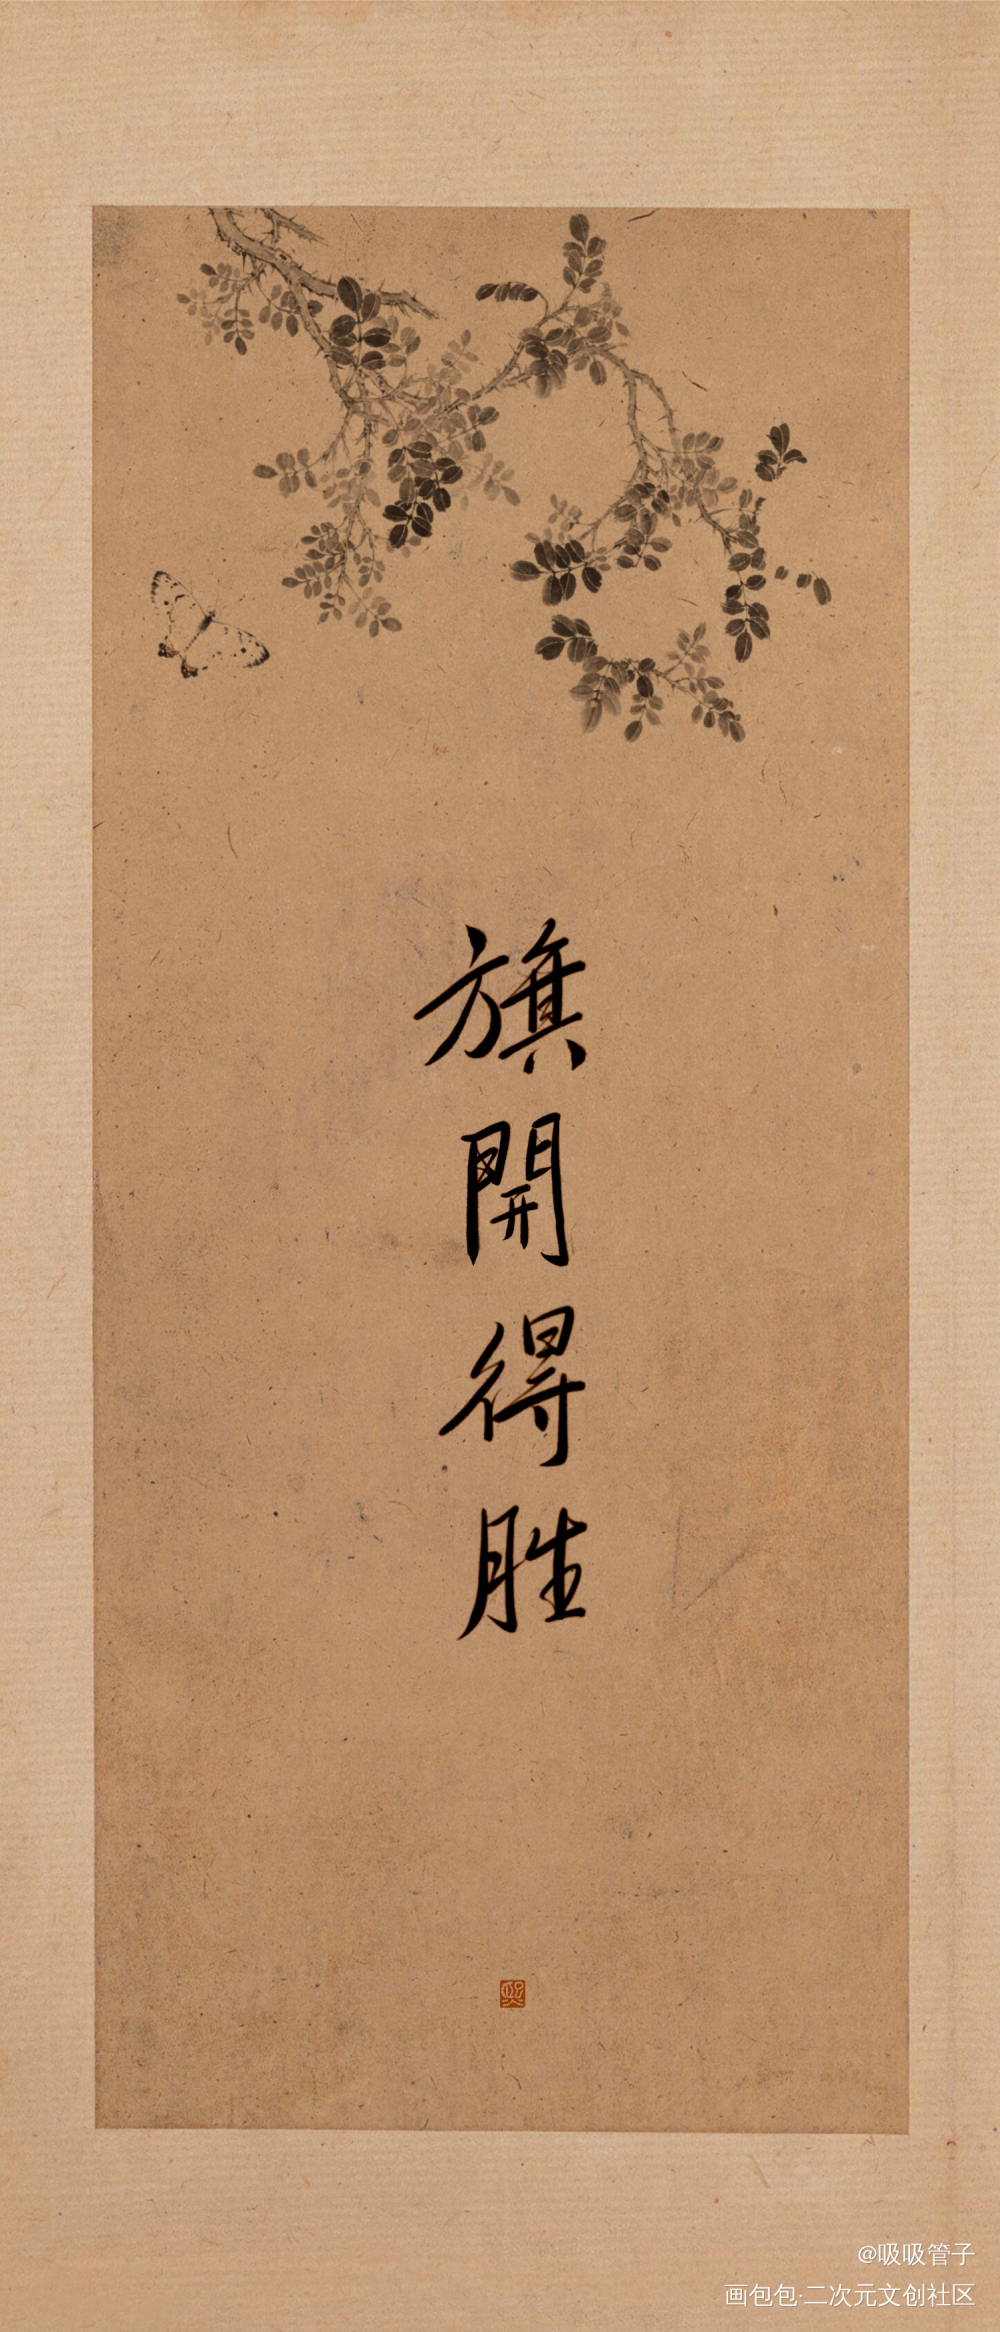 旗開得胜
熙
@吸吸管子
画包包·二次元文创社区